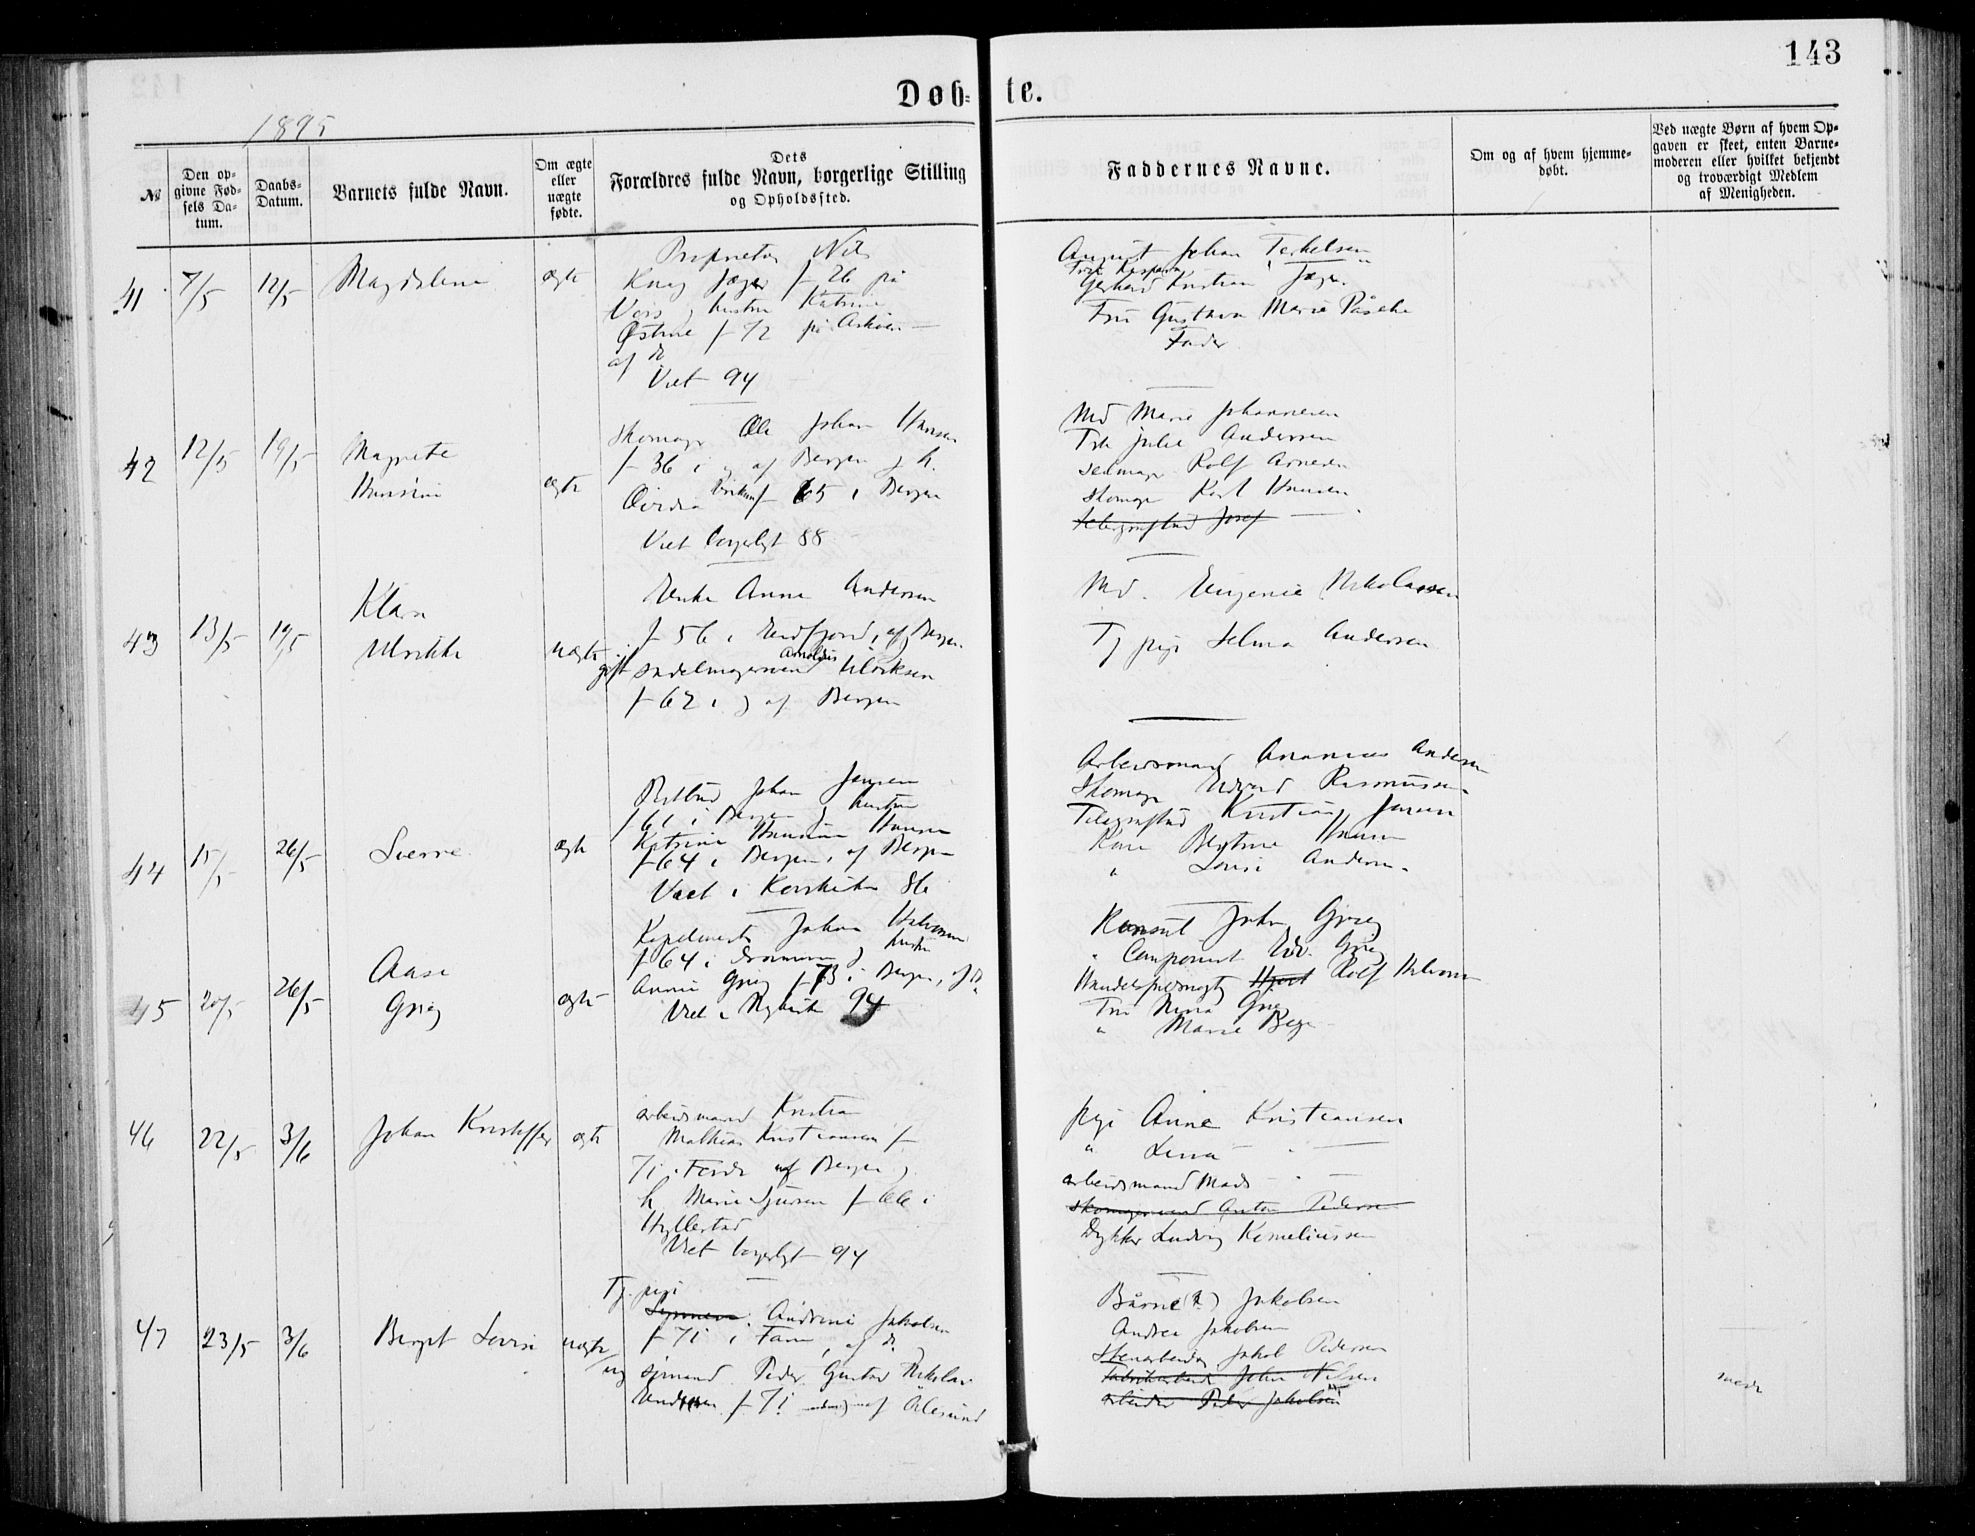 143
Døb=
te.
1895
№
Den op=
givne Fød=
sels Da=
tum.
Daabs=
Datum.
Barnets fulde Navn.
Om ægte
eller
uægte
fødte.
Dets
Forældres fulde Navn, borgerlige Stilling
og Opholdssted.
Faddernes Navne.
Om og af hvem hjemme=
døbt.
Ved uægte Børn af hvem Op=
gaven er skeet, enten Barne=
moderen eller hvilket bekjendt
og troværdigt Medlem
af Menigheden.
41
7/5
12/5
Magdalena
ægte
Proprietær Nils
Knag Jæger f 26 på
Voss, hustru Katrine
f 72 på Askøen
af
Viet 94
August Johan Terkelsen
Gerhard Kristian Jæger
Fru Gustava Marie Påsche
Fader
42
12/5
19/5
Magreta
Hansine
ægte
Skomager Ole Johan Hansen
f 36 i og af Bergen g h.
f 65 i Bergen
Viet borgerligt 88
Md Marie Johannesen
Frk Julie Andersen
Rolf Arnesen
Skomager Karl Hansen
Josef
43
13/5
19/5
Klara
Ulrikke
uægte
Enke Anna Andersen
f 56 i Eidfjord, af Bergen
gift sadelmagersvend Arnoldus Ulriksen
f 62 i og af Bergen
Md. Eugenie Nikolaisen
Tj pige Selma Andersen
44
15/5
26/5
Sverre
ægte
Postbud Johan Jensen
f 61 i Bergen g hustru
Katrine Hansine Hansen
f 64 i Bergen, af Bergen
Viet i Korskirken 86
Arbeidsmand Ananias Andersen
Skomager Edvard Rasmussen
Telegrafbud Kristian Jensen
Kone Bertine Hansen
" Lovise Andersen
45
20/5
26/5
Aase
Grieg
ægte
Kapelmester Johan Halvorsen
f 64 i Drammen g hustru
Annie Grieg f 73 i Bergen, af B.
Viet i Nykirken 94
Konsul John Grieg
" Componist Edv. Grieg
Handelsfuldmægtig Hjort Rolf Halvorsen
Fru Nina Grieg
" Marie Beyer
46
22/5
3/6
Johan Kristoffer
ægte
arbeidsmand Kristian
Mathias Kristiansen f
71 i Førde af Bergen g
h Marie Sjursen f 66 i
Hyllestad
Viet borgerligt 94
pige Anne Kristiansen
" Lena
arbeidsmand Mads
Skomagersvend Anton Pedersen
Dykker Ludvig Korneliussen
47
23/5
3/6
Bergit Lovise
uægte
Tj. pige
Andrine Jakobsen
f 71 i Fane, af d.
ug sjømand Peder Gustav Nikolai
f 71 af Ålesund
Bårne (?) Jakobsen
Andrea Jakobsen
Stenarbeider Jakob Pedersen
Fabrikarbeider John Nilsen
arbeider Peder Jakobsen
moder